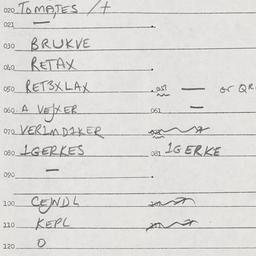 020 TOMATES /t
021 —
030 BRUKVE
040 RETAX
050 RET3XLAX 051 — or QR
060 A VEJXER 061 —
070 VER1MD1KER
080 1GERKES 081 1GERKE
090 —
100 CEJNDL
110 KEPL
120 O